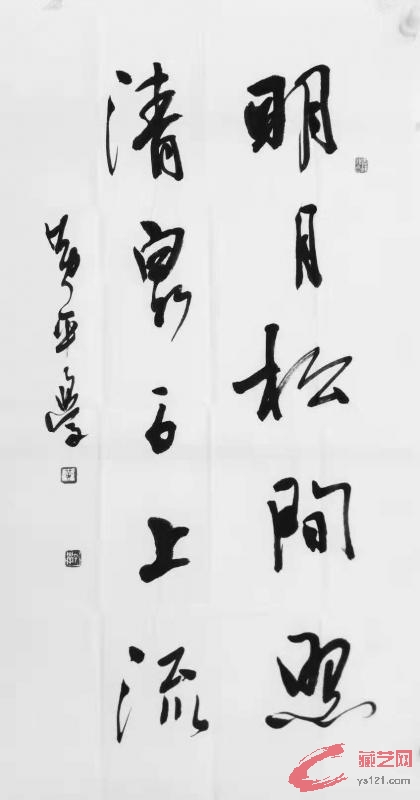 明月松間照
清泉石上流
藏艺网
ys121.com